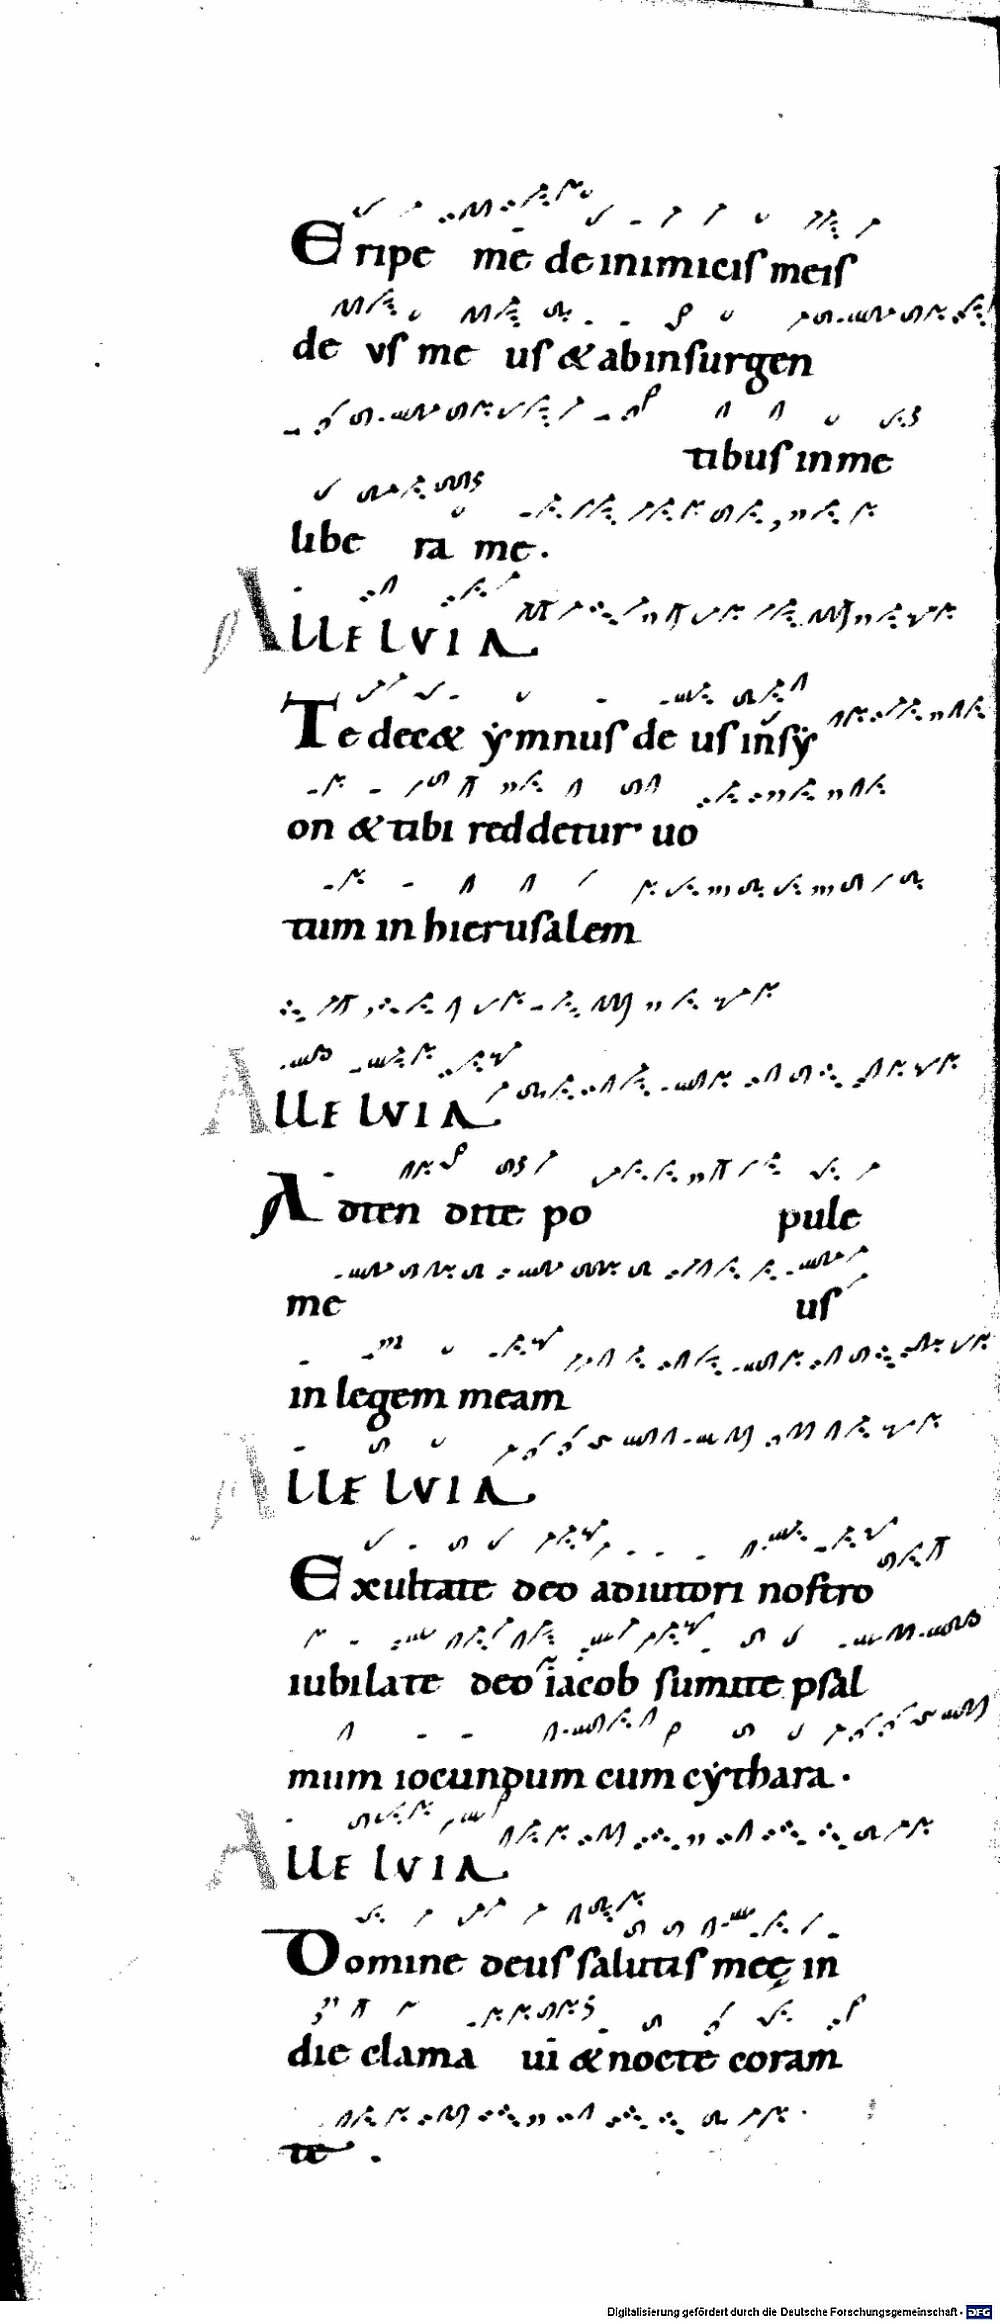 Eripe me de inimicis meis
de vs me us & ab insurgen
tibus in me
libe ra me.
ALLELVIA
Te decet ẏmnus de us in sẏ
on & tibi reddetur uo
tum in hierusalem
ALLELVIA
Adten dite po pule
me us
in legem meam
ALLELVIA
Exultate deo adiutori nostro
iubilate deo iacob sumite psal
mum iocundum cum cẏthara.
ALLELVIA
Domine deus salutis meę in
die clama ui & nocte coram
te.
Digitalisierung gefördert durch die Deutsche Forschungsgemeinschaft - DFG